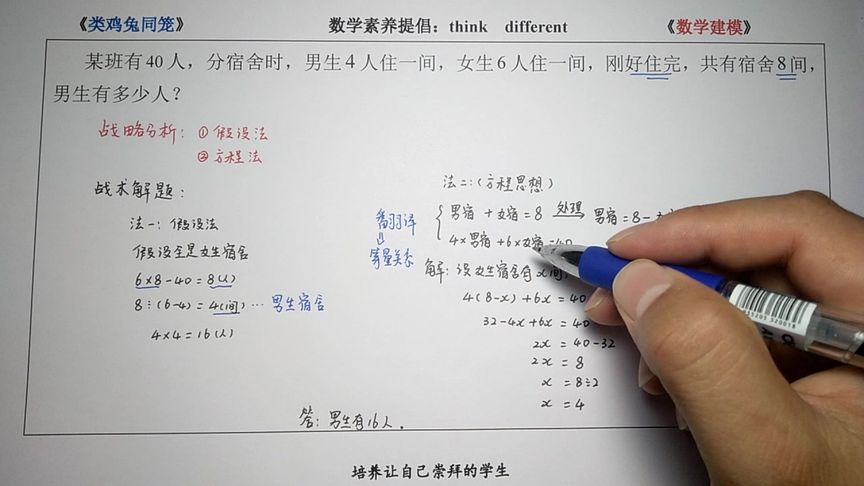 《类鸡兔同笼》 数学素养提倡：think different 《数学建模》
某班有40人，分宿舍时，男生4人住一间，女生6人住一间，刚好住完，共有宿舍8间，
男生有多少人？
战略分析：① 假设法
② 方程法
战术解题：
法一：假设法
假设全是女生宿舍
6×8-40=8(人)
8÷(6-4)=4(间)…男生宿舍
4×4=16(人)
法二：(方程思想)
翻译
⇓
等量关系
男宿+女宿=8 处理→ 男宿=8-
4×男宿+6×女宿=40
解：设女生宿舍有x间
4(8-x)+6x=40
32-4x+6x=40
2x=40-32
2x=8
x=8÷2
x=4
答：男生有16人.
培养让自己崇拜的学生